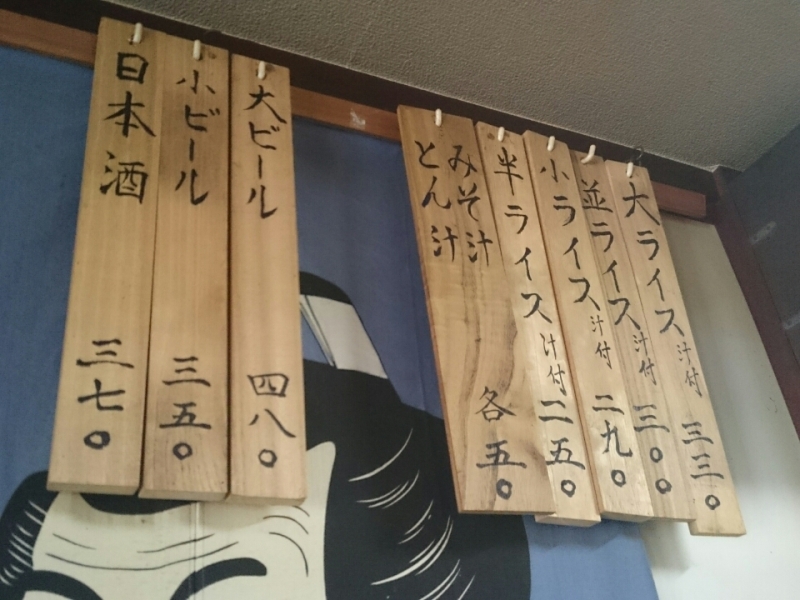 大ライス汁付 三三〇
並ライス汁付 三〇〇
小ライス汁付 二九〇
半ライス汁付 二五〇
みそ汁
とん汁
各五〇
大ビール 四八〇
小ビール 三五〇
日本酒 三七〇